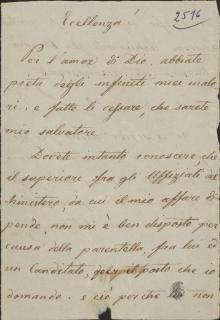 Eccellenza!
2516
Per l'amor di Dio, abbiate
pietà degli infiniti miei malo
ri, e fatte li cessare, che sarete
mio salvatore
Dovete intanto conoscere, che
il superiore fra gli Uffiziali del
Ministero, da cui il mio affare di
pende, non mi è ben disposto per
causa della parentella, fra lui ed
un Canditato, per il posto che io
domando. e ciò perche non